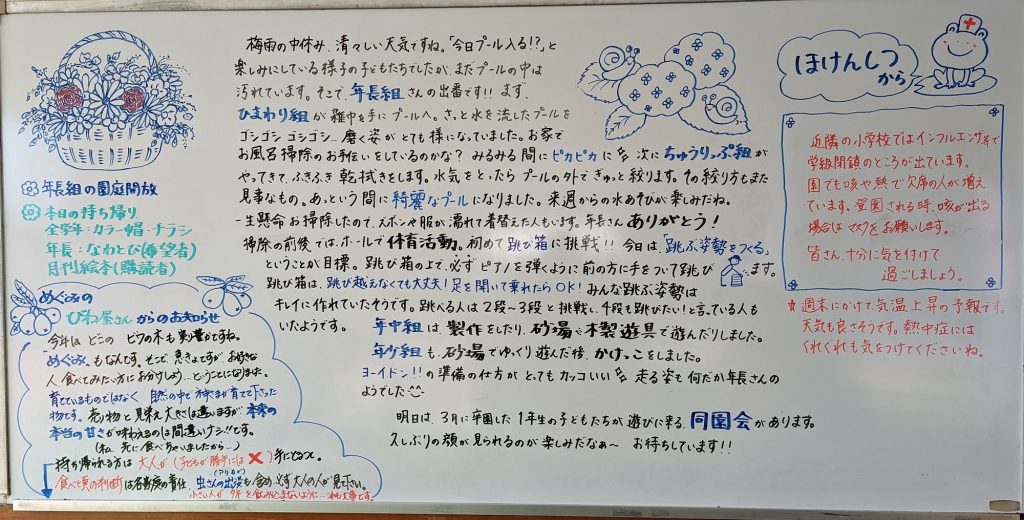 年長組の園庭開放
本日の持ち帰り
全学年：カラー帽・チラシ
年長：なわとび(希望者)
月刊絵本(購読者)
めぐみの
びわ屋さんからのお知らせ
今年は どこの ビワの木も 実が豊かですね。
めぐみ もなんです。
人 食べてみたい方にお分けしよう…ということになりました。
育てているものではなく 自然の中で 神さまが育て下さった
物です。売り物と 見栄え 大きさは違いますが
本当の甘さが味わえるのは間違いナシ!!です。
(私、先に食べちゃいましたから…)
持ち帰られる方は 大人が (子どもが 勝手には ✕)
食べ頃の判断は各家庭の責任 虫さんの出没も含め 必ず大人の人が見て下さい。
梅雨の中休み、清々しい天気ですね。「今日プール入る!?」と
楽しみにしている様子の子どもたちでしたが、まだプールの中は
汚れています。そこで、年長組さんの出番です!! まず、
ひまわり組が 雑巾を手にプールへ。さっと水を流したプールを
ゴシゴシ ゴシゴシ… 磨く姿が とても 様になっていました。お家で
お風呂掃除のお手伝いをしているのかな? みるみる間に ピカピカに 次に ちゅうりっぷ組が
やってきて、ふきふき 乾拭きをします。水気をとったら プールの外で ぎゅっと絞ります。その絞り方もまた
見事なもの。あっという間に 綺麗なプール になりました。来週からの水あそびが楽しみだね。
一生懸命お掃除したので、ズボンや服が濡れて着替えた人もいます。年長さん ありがとう!
掃除の前後では、ホールで 体育活動。初めて 跳び箱 に挑戦!! 今日は、「跳ぶ姿勢をつくる」
ということが目標。跳び箱の上で、必ず ピアノを弾くように 前の方に手をついて跳び ます。
跳び箱は、跳び越えなくても大丈夫! 足を開いて乗れたらOK! みんな跳ぶ姿勢は
キレイに作れていたそうです。跳べる人は 2段〜3段と挑戦し、4段も跳びたい!と言っている人も
いたようです。 年中組は、製作をしたり、砂場や木製遊具で遊んだりしました。
年少組も、砂場でゆっくり遊んだ後、かけっこをしました。
ヨーイドン!!の準備の仕方が とってもカッコいい 走る姿も 何だか年長さんの
ようでした
明日は、3月に卒園した 1年生の子どもたちが 遊びに来る 同園会があります。
久しぶりの顔が見られるのが 楽しみだなぁ〜 お待ちしています!!
ほけんしつ
から
近隣の小学校ではインフルエンザ等で
学級閉鎖のところが出ています。
園でも咳や熱で欠席の人が増え
ています。登園される時、咳が出る
場合はマスクをお願いします。
皆さん、十分に気を付けて
過ごしましょう。
☆週末にかけて気温上昇の予報です。
天気も良さそうです。熱中症には
くれぐれも気をつけてくださいね。